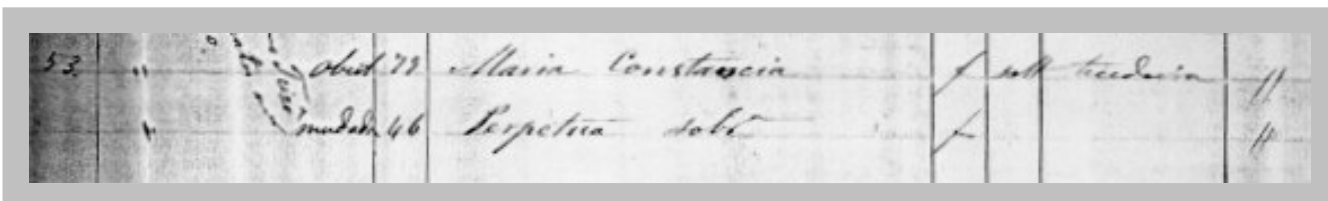 53. " obiit 78 Maria Constancia f solt tecedeira "
" mudada 46 Perpetua sobr.ª f "